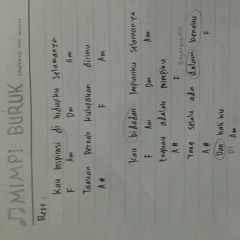 MIMPI BURUK
Reff :
Kau Inspirasi di hidupku Selamanya
F Am Dm Am
Takkan Pernah kulupakan dirimu
A# F Am
Kau bidadari Impianku selamanya
F Am Dm Am
Engkau adalah mimpiku
A# F
Yang selalu ada dalam benakku
A# F
Dan hatiku
Am